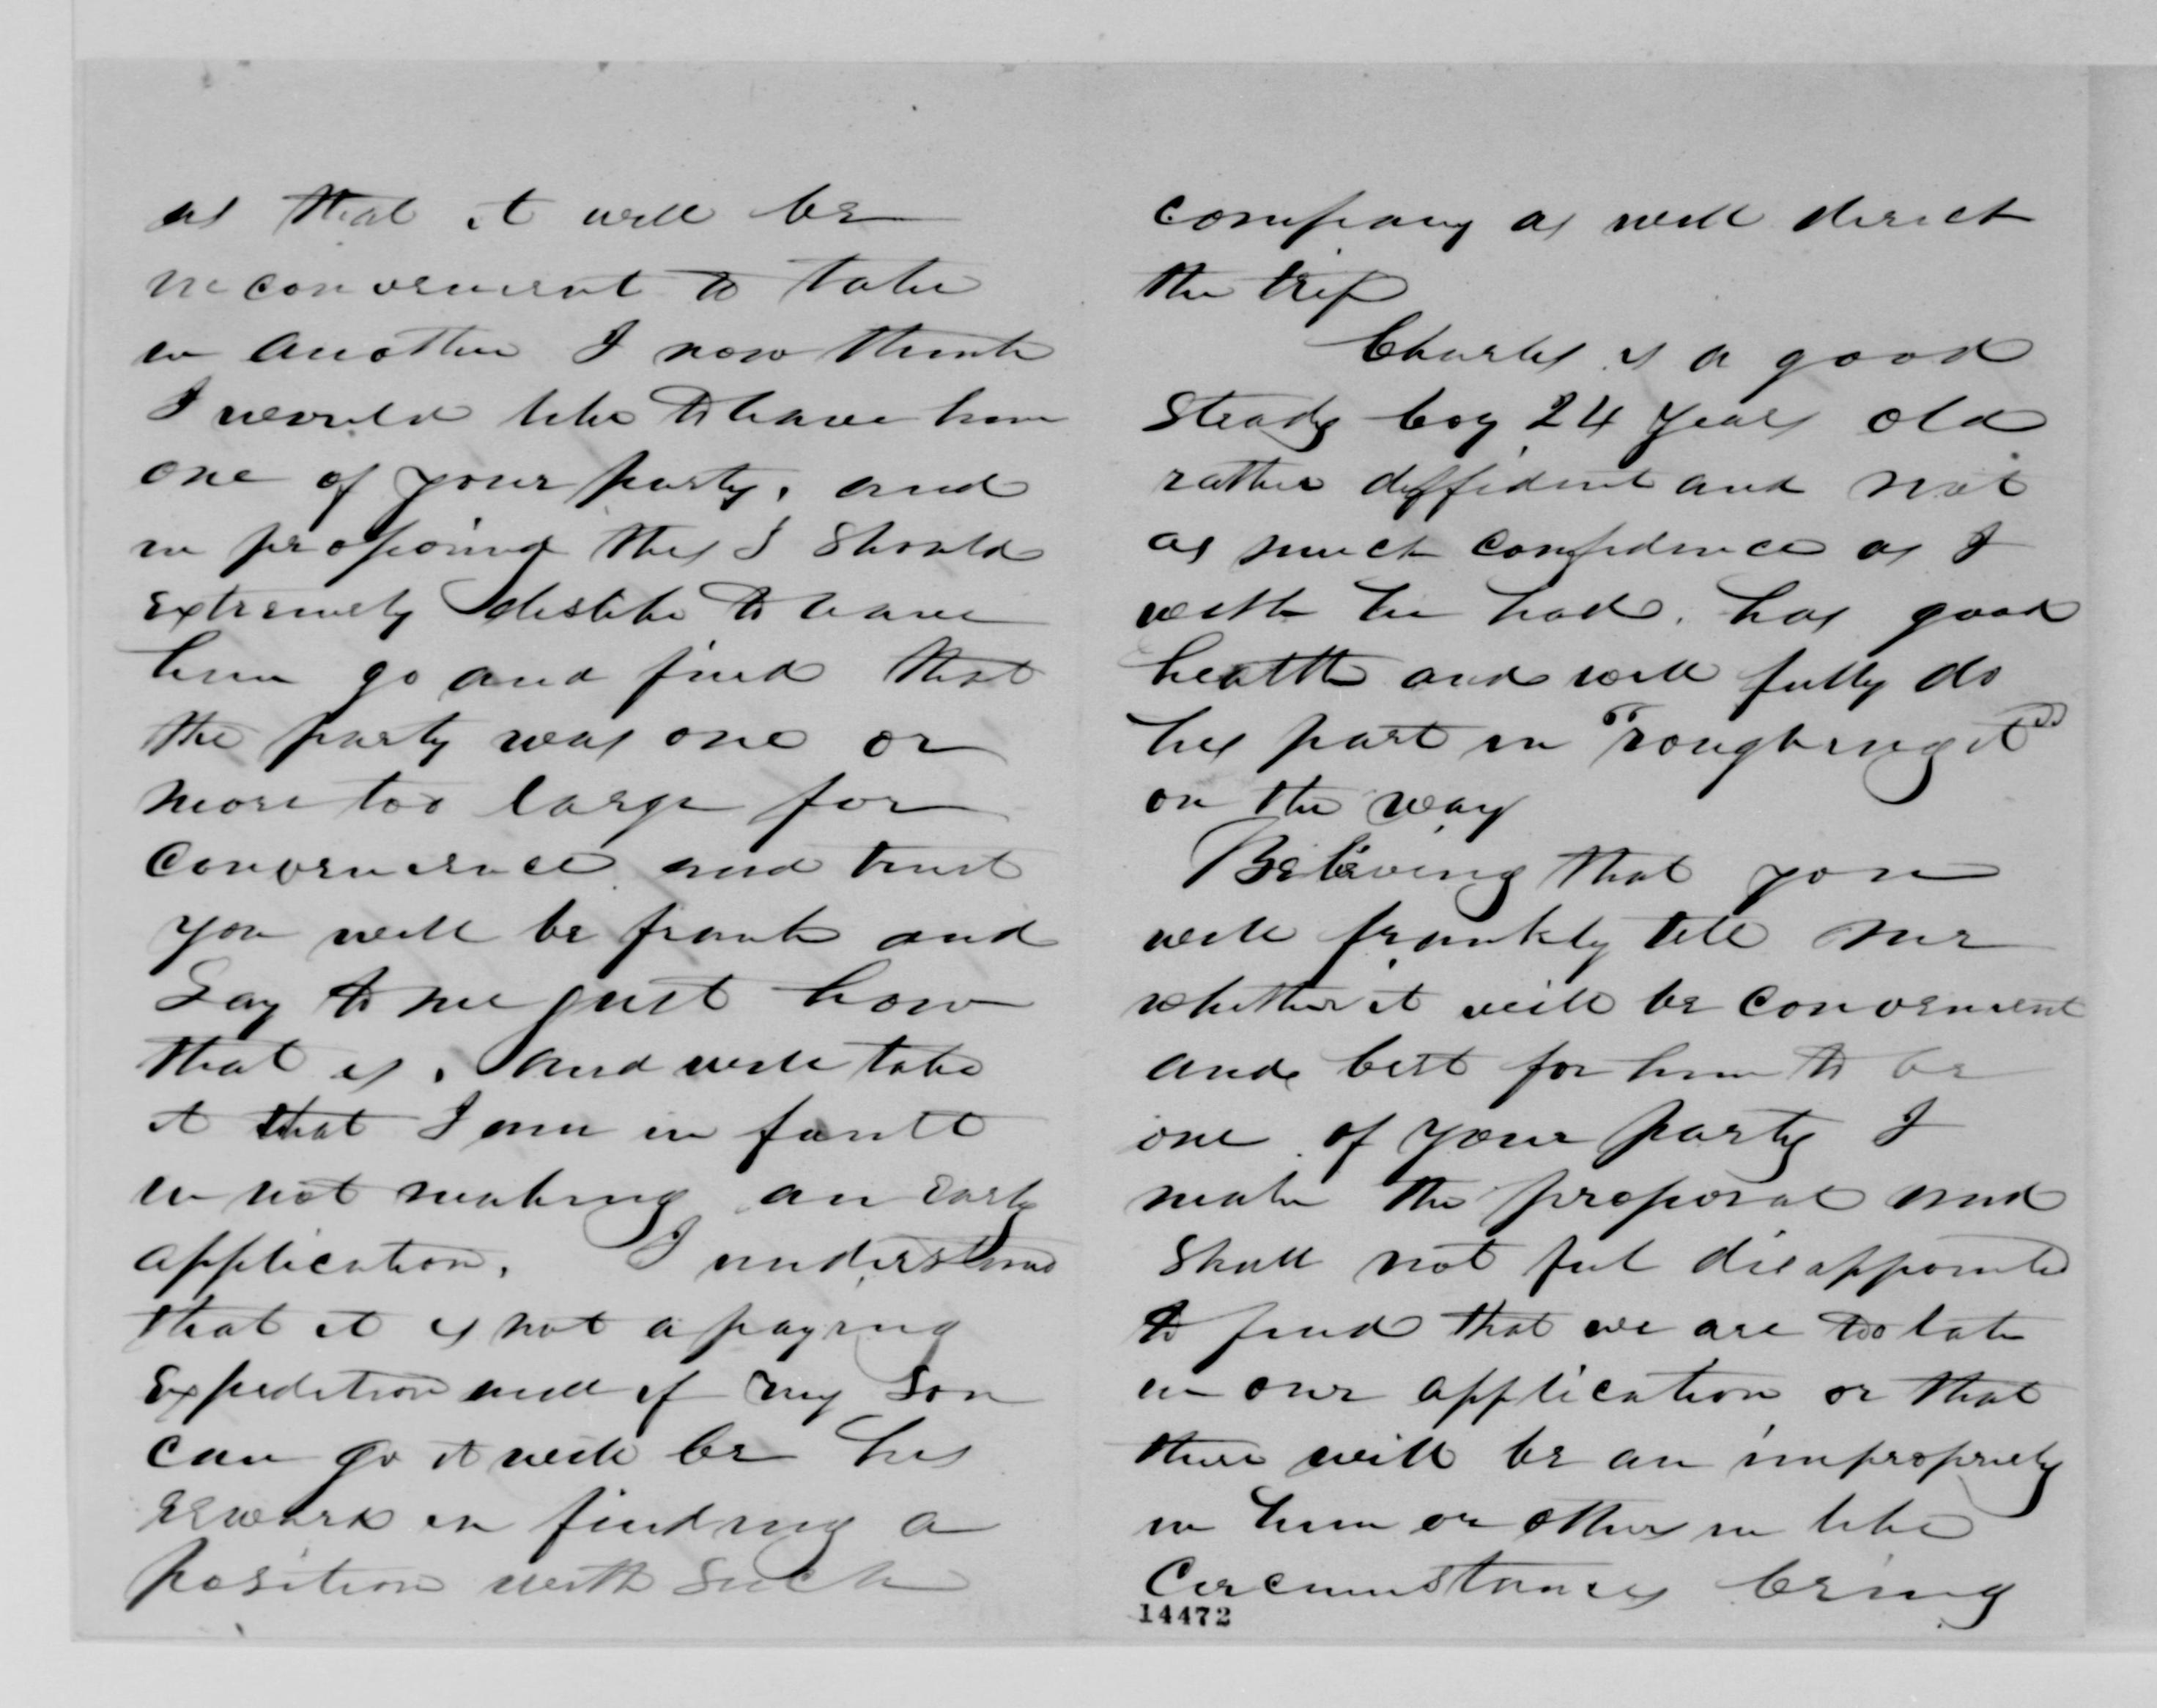 as that it will be
inconvenient to take
in another I now think
I would like to have him
one of your party, and
in propound this I should
extremely dislike to have
him go and find that
the party was one or
more too large for
convenience and trust
you will be frank and
Say to me just how
that is, and will take
it that I am in fault
in not making an early
application. I understand
that it is not a paying
Expedition and if my Son
can go it will be his
reward in finding a
position with such
company as will direct
the trip
Charles is a good
steady boy 24 years old
rather diffident and not
as much confidence as I
wish he had, has good
health and will fully do
his part in "roughing it"
on the way
Believing that you
will frankly tell me
whether it will be convenient
and best for him to be
one of your party I
make the proposal and
shall not feel disappointed
to find that we are too late
in our application or that
there will be an impropriety
in him or others in like
Circumstances being
14472